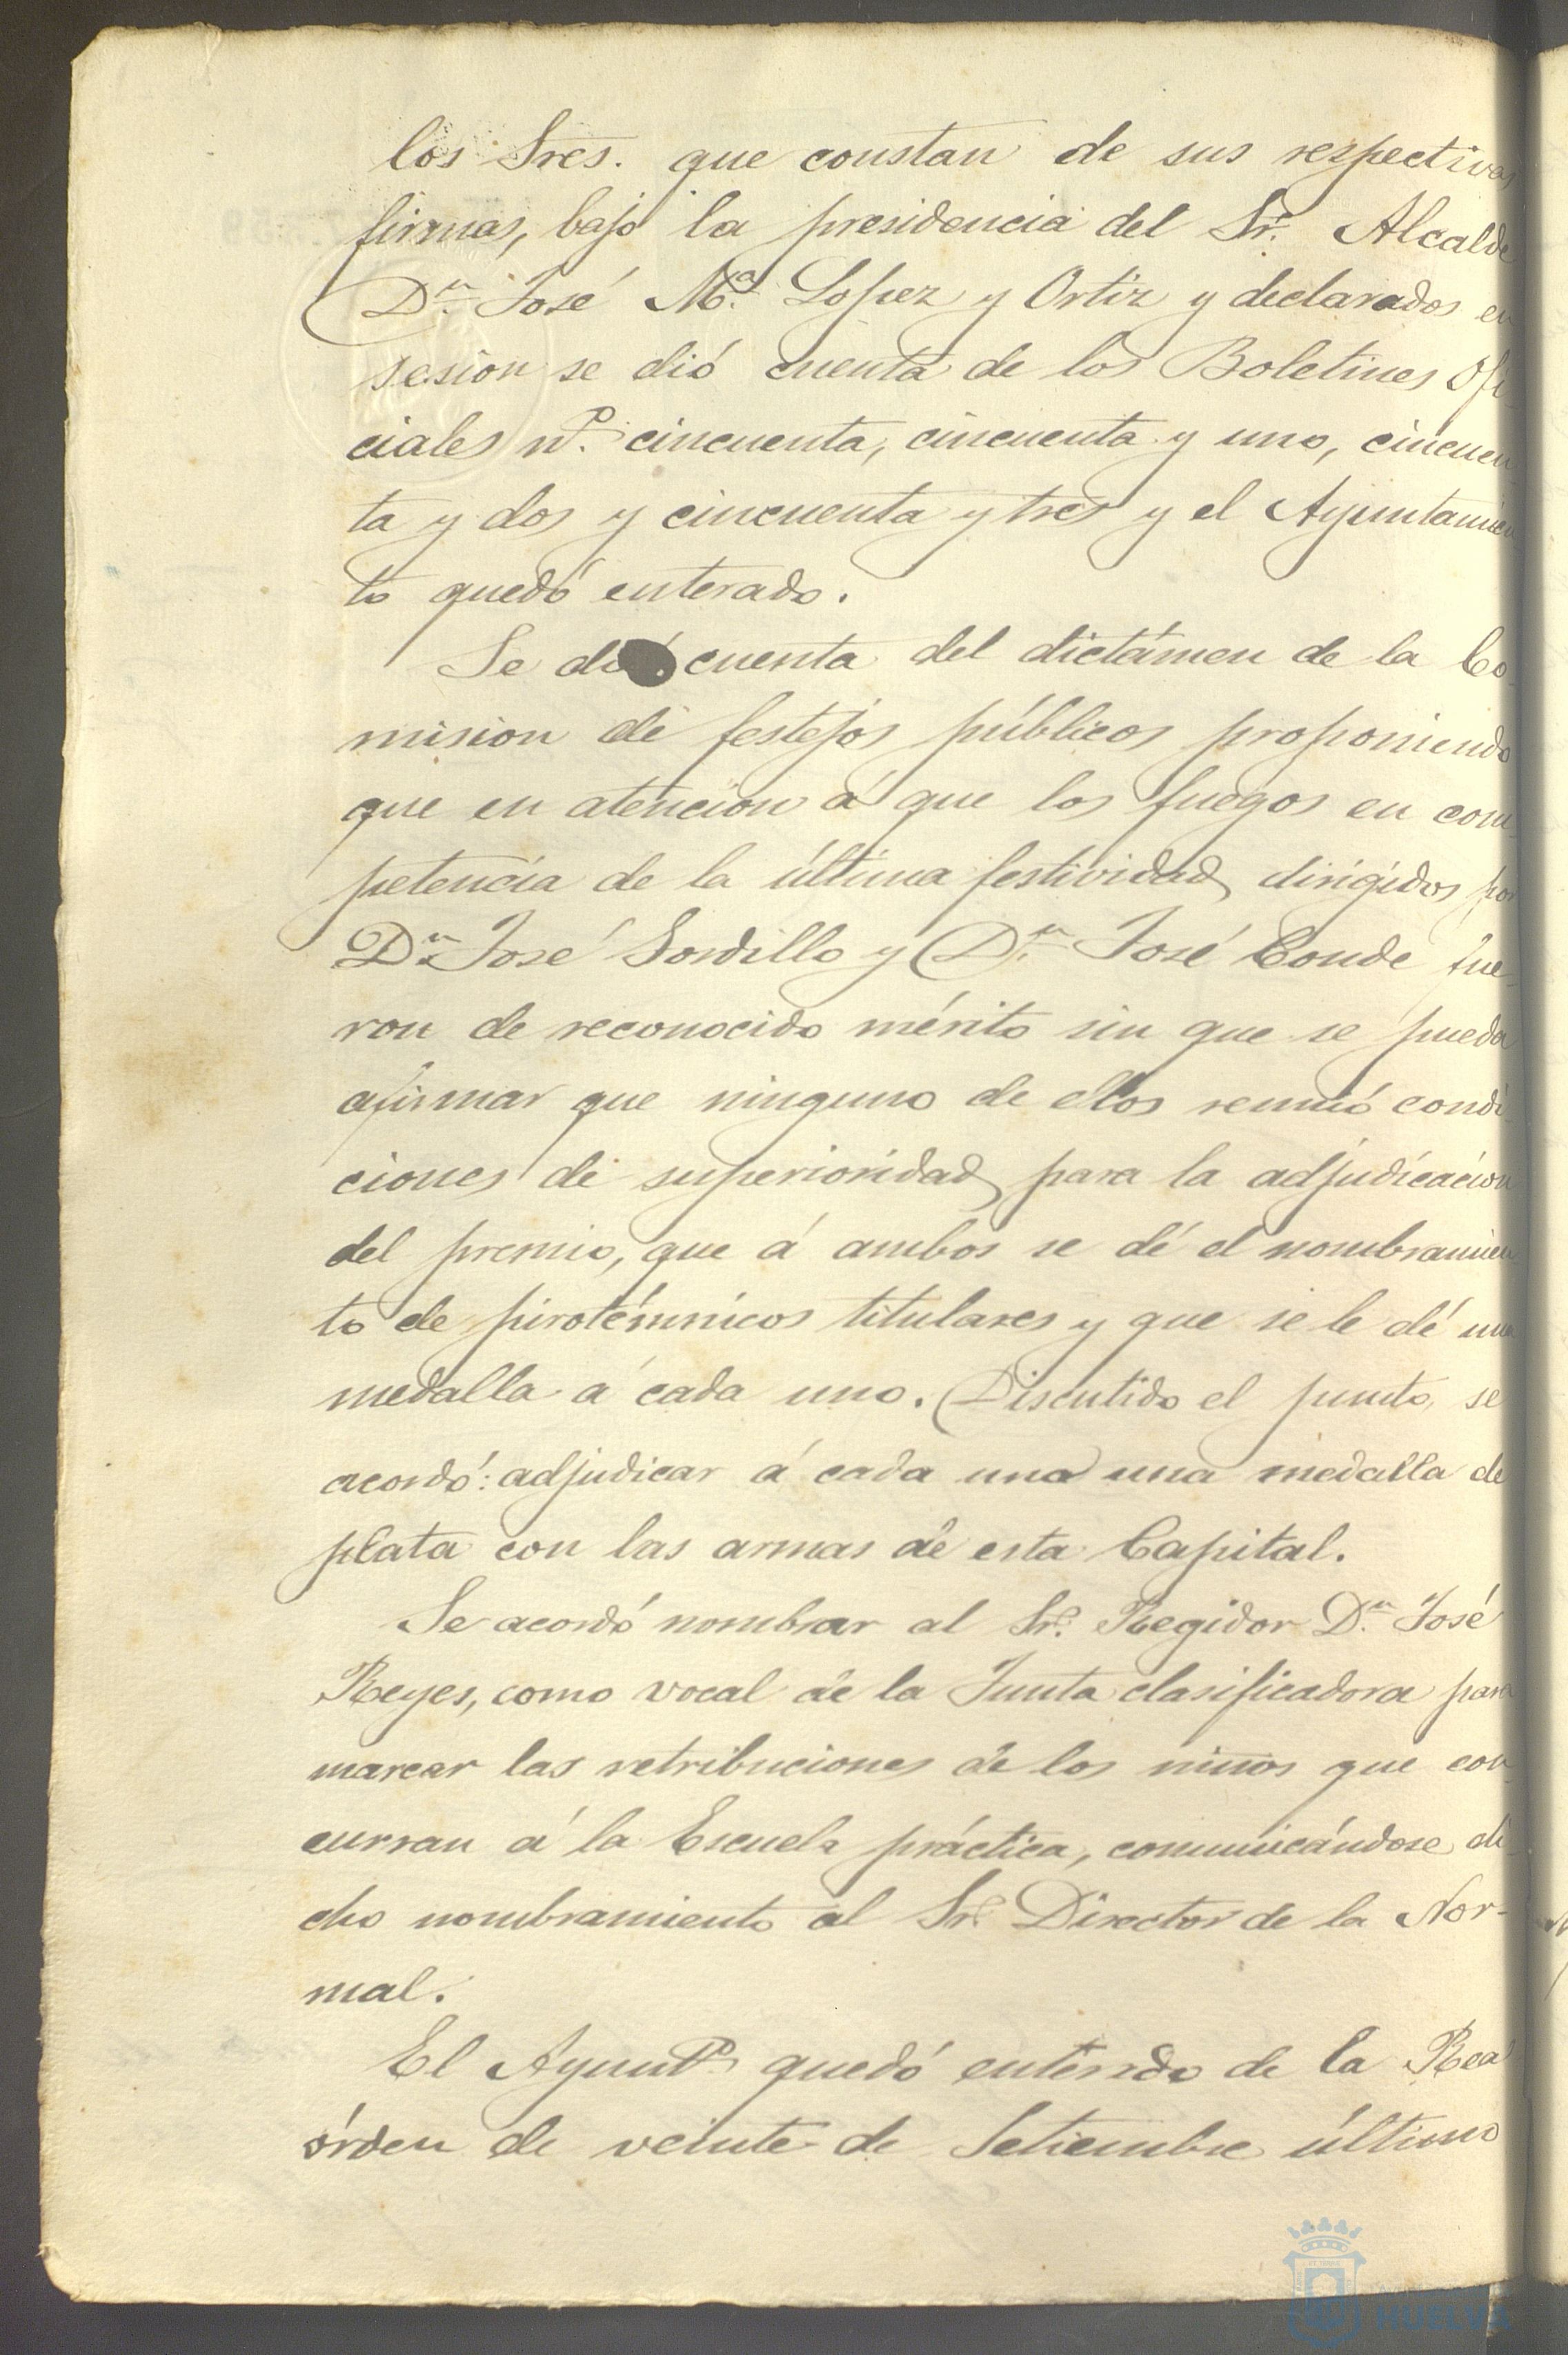 los Sres. que constan de sus respectivas
firmas, bajo la presidencia del Sr. Alcalde
Dn. José Ma. Lopez y Ortiz y declarados en
sesion se dió cuenta de los Boletines Ofi-
ciales no. cincuenta, cincuenta y uno, cincuen-
ta y dos y cincuenta y tres y el Ayuntamien-
to quedó enterado.
Se dió cuenta del dictámen de la Co-
mision de festejos públicos proponiendo
que en atencion á que los fuegos en com-
petencia de la última festividad dirigidos por
Dn. José Sordillo y Dn. José Conde fue-
ron de reconocido mérito sin que se pueda
afirmar que ninguno de ellos reunió condi-
ciones de superioridad para la adjudicacion
del premio, que á ambos se dé el nombramien-
to de pirotémnicos titulares y que se le dé una
medalla á cada uno. Discutido el punto, se
acordó: adjudicar á cada uno una medalla de
plata con las armas de esta Capital.
Se acordó nombrar al Sr. Regidor Dn. José
Reyes, como vocal de la Junta clasificadora para
marcar las retribuciones de los niños que con-
curran á la Escuela práctica, comunicándose di-
cho nombramiento al Sr. Director de la Nor-
mal.
El Ayunto. quedó enterado de la Real
órden de veinte de Setiembre último
HUELVA